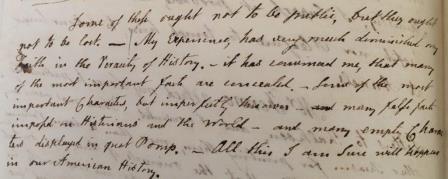 Some of these ought not to be public, but they ought
not to be lost. — My Experience, has very much diminished my
Faith in the Veracity of History. — it has convinced me, that many
of the most important facts are concealed. — some of the most
important Characters, but imperfectly known — many false facts
imposed on Historians and the World — and many empty Charac
ters displayed in great Pomp. — All this I am sure will happen
in our American History.